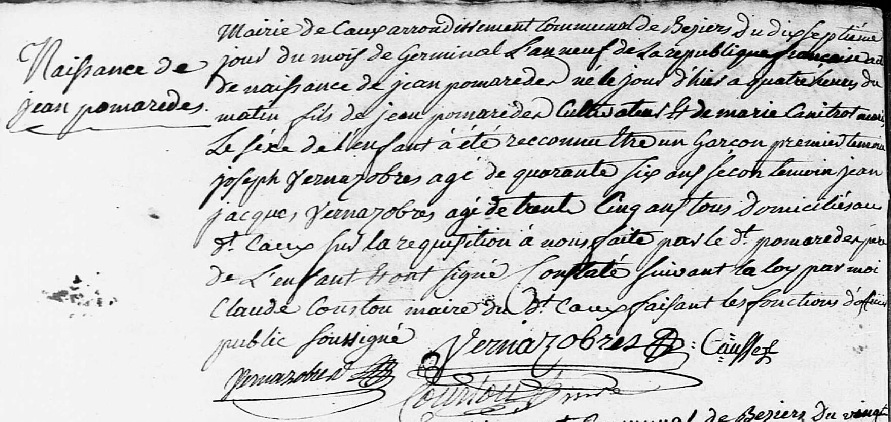 Naissance de
jean pomarédes
Mairie de Caux arrondissement Communal de Beziers du dix septiéme
jour du mois de Germinal L'an neuf de la republique française act
de naissance de jean pomaredes né le jour d'hier a quatre heures du
matin fils de jean pomaredes Cultivateur Et de marie Canitrot mariés
Le séxe de l'enfant à été recconnu Etre un Garçon premier temoin
joseph Vernazobres agé de quarante six ans sécon temoin jean
jacques Vernazobres agé de trente Cinq ans tous domiciliés au
dt. Caux sur la requisition à nous faite par le dt. pomaredes pere
de L'enfant Et ont signé Constaté suivant la loy par moi
Claude Couston maire du dt. Caux faisant les fonctions d'officier
public soussigné
Vernazobres Causse
Vernazobres
Communal de Beziers du vingt